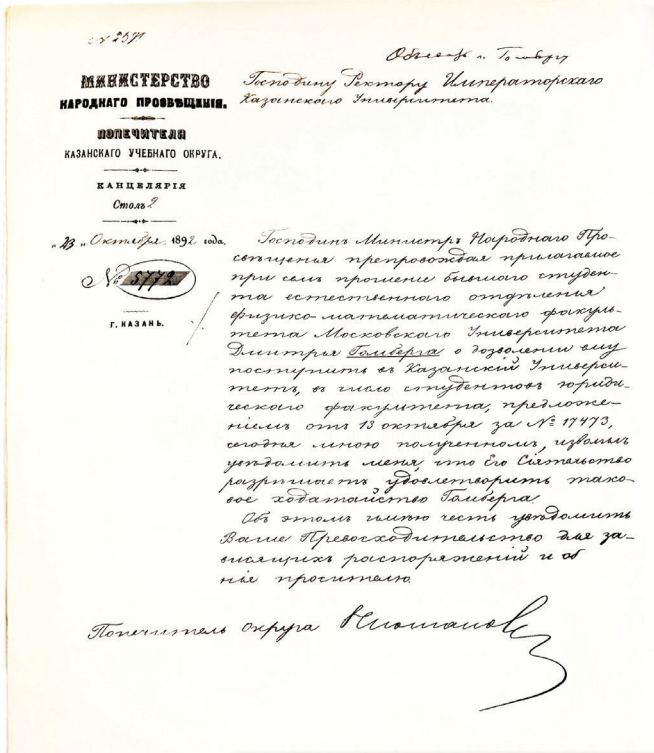 № 2571
Объявить г. Гомбергу
МИНИСТЕРСТВО
НАРОДНАГО ПРОСВѢЩЕНІЯ.
ПОПЕЧИТЕЛЯ
КАЗАНСКАГО УЧЕБНАГО ОКРУГА.
КАНЦЕЛЯРІЯ
Столъ 2
„23„ Октября 1892 года.
№ 5772
Г. КАЗАНЬ.
Господину Ректору Императорскаго
Казанскаго Университета.
Господинъ Министръ Народнаго Про-
свѣщенія препровождая прилагаемое
при семъ прошеніе бывшаго студен-
та естественнаго отдѣленія
физико-математическаго факуль-
тета Московскаго Университета
Дмитрія Гомберга о дозволеніи ему
поступить въ Казанскій Универси-
тетъ, въ число студентовъ юриди-
ческаго факультета, предложе-
ніемъ отъ 13 октября за № 17473,
сегодня мною полученномъ, изволилъ
увѣдомить меня, что Его Сіятельство
разрѣшаетъ удовлетворить тако-
вое ходатайство Гомберга.
Объ этомъ имѣю честь увѣдомить
Ваше Превосходительство для за-
висящихъ распоряженій и объ
просителю.
Попечитель округа